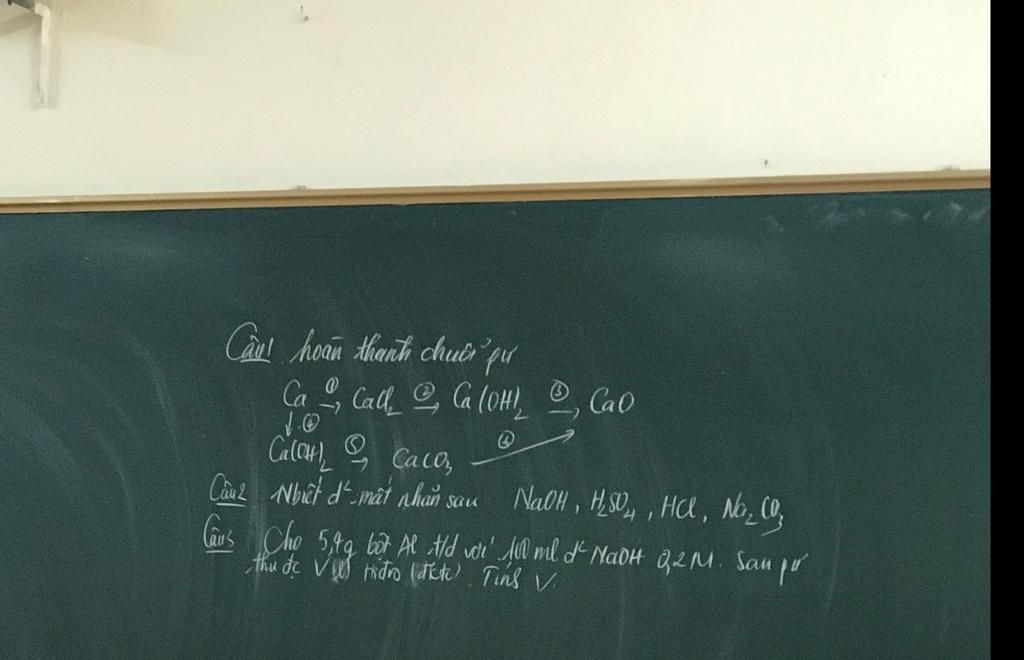 Câu1 hoàn thành chuỗi pư
Ca ①→ CaCl₂ ②→ Ca(OH)₂ ③→ CaO
↓④
Ca(OH)₂ ⑤→ CaCO₃ ⑥→
Câu2 Nbiết d² mất nhãn sau NaOH, H₂SO₄, HCl, Na₂CO₃
Câu3 Cho 5,4g bột Al t/d với 100 ml d² NaOH 0,2M. Sau pư
thu đc V lít Hiđro (đktc). Tính V.